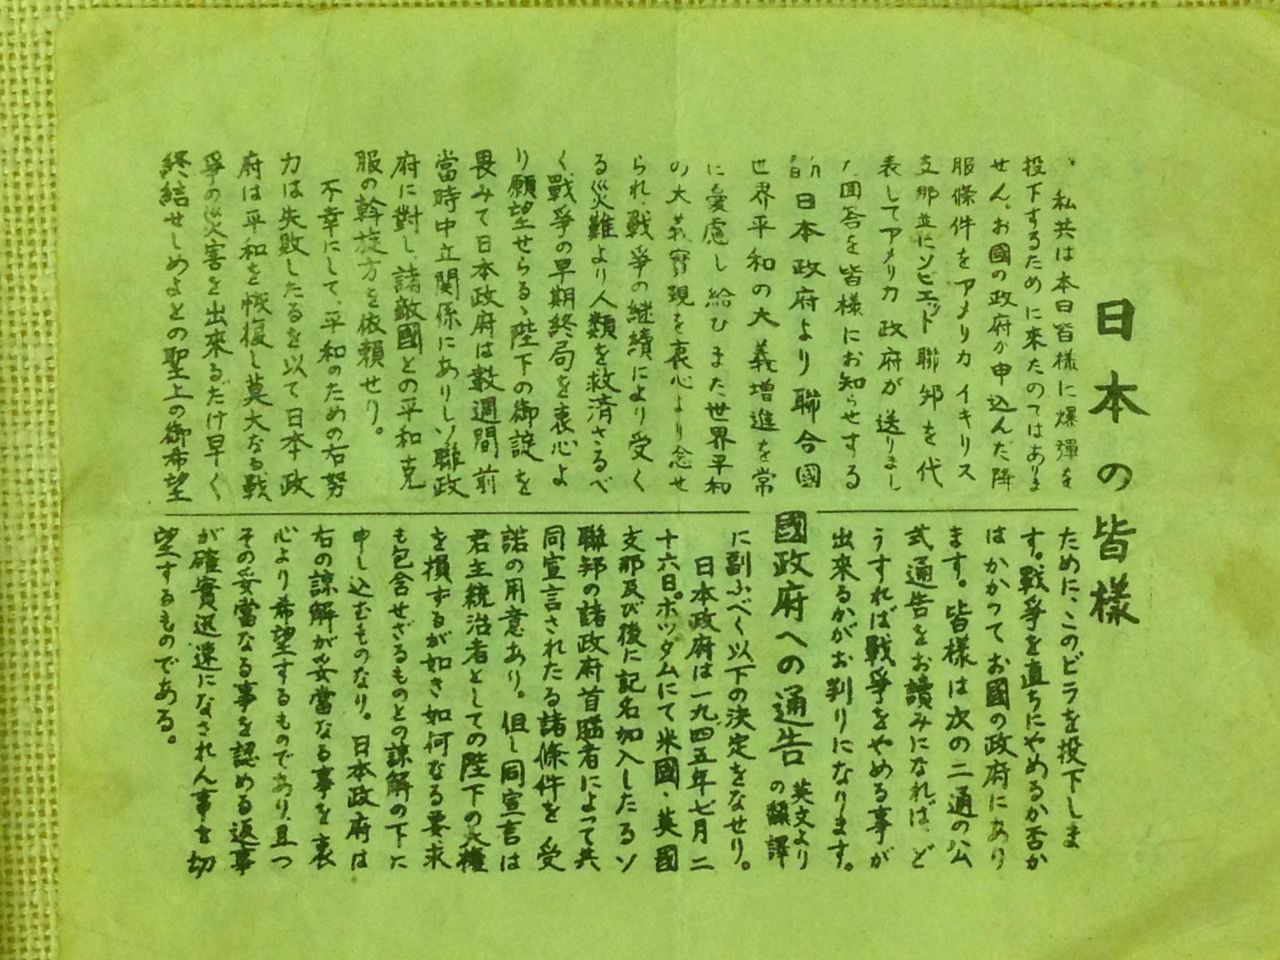 日本の皆様
私共は本日皆様に爆彈を
投下するために来たのではありま
せん。お國の政府が申込んだ降
服條件をアメリカ イギリス
支那並にソビエット聯邦を代
表してアメリカ政府が送りまし
た回答を皆様にお知らせする
ために、このビラを投下しま
す。戰爭を直ちにやめるか否か
はかかってお國の政府にあり
ます。皆様は次の二通の公
式通告をお讀みになれば、ど
うすれば戰爭をやめる事が
出來るかがお判りになります。
日本政府より聯合國
國政府への通告
英文より
の飜譯
世界平和の大義増進を常
に憂慮し給ひまた世界平和
の大義實現を衷心より念せ
られ、戰爭の継續により受く
る災難より人類を救済さるべ
く、戰爭の早期終局を衷心よ
り願望せらるゝ陛下の御諚を
畏みて日本政府は數週間前
當時中立關係にありしソ聯政
府に對し、諸敵國との平和克
服の斡旋方を依頼せり。
不幸にして、平和のための右努
力は失敗したるを以て日本政
府は平和を恢復し莫大なる戰
爭の災害を出來るだけ早く
終結せしめよとの聖上の御希望
に副ふべく以下の決定をなせり。
日本政府は一九四五年七月二
十六日。ポツダムにて米國・英國
支那及び後に記名加入したるソ
聯邦の諸政府首脳者によって共
同宣言されたる諸條件を受
諾の用意あり。但し同宣言は
君主統治者としての陛下の大權
を損ずるが如き如何なる要求
も包含せざるものとの諒解の下に
申し込むものなり。日本政府は
右の諒解が妥當なる事を衷
心より希望するものであり、且つ
その妥當なる事を認める返事
が確實迅速になされん事を切
望するものである。